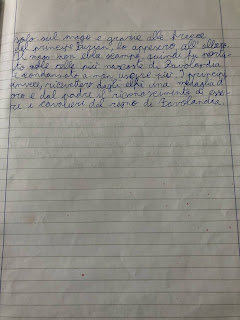 solo sul mago e grazie alle frecce
del principe Azzan, lo appesero, all'albero
Il mago non ebbe scampo, quindi fu porta-
to nelle celle più nascoste di Favolandia
e condannato a non uscire più. I principi
invece, ricevettero dagli elfi una medaglia d'
oro e dal padre il riconoscimento di esse-
re i cavalieri del regno di Favolandia.